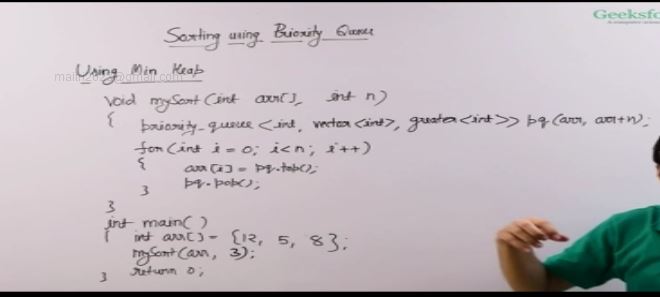 Geeksfo
Sorting using Priority Queue
Using Min Heap
void mySort(int arr[], int n)
{ priority_queue <int, vector<int>, greater<int>> pq(arr, arr+n);
for(int i=0; i<n; i++)
{ arr[i] = pq.top();
pq.pop();
}
}
int main()
{ int arr[] = {12, 5, 8};
mySort(arr, 3);
} return 0;